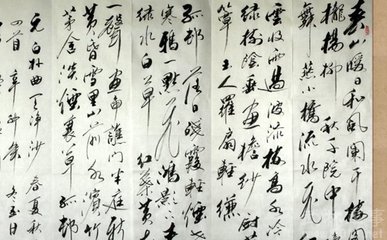 春山暖日和風闌干樓閣
櫳楊柳秋千院中
舞燕小橋流水飛
雲收雨過波添樓高水冷
綠樹陰垂畫檐紗廚
簟玉人羅扇輕縑
孤邨落日殘霞輕煙
寒鴉一點飛鴻影
綠水白草紅葉黃
一聲畫角譙門半庭新
黃昏雪里山前水濱竹
茅舍淡煙衰草孤邨
元白朴曲天淨沙春夏秋
四首辛卯冬至日